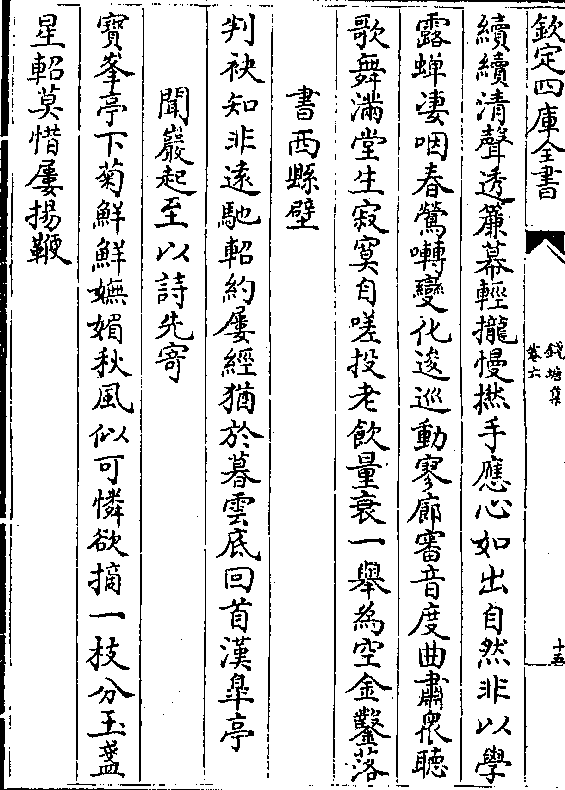 欽定四庫全書
錢塘集
卷六
十五
續續清聲透簾幕輕攏慢撚手應心如出自然非以學
露蟬淒咽春鶯囀變化逡巡動寥廊審音度曲肅衆聽
歌舞滿堂生寂寞自嗟投老飲量衰一舉為空金鑿落
書西縣壁
判袂知非遠馳軺約屢經猶於暮雲底回首漢臯亭
聞巖起至以詩先寄
寶峯亭下菊鮮鮮嫵媚秋風似可憐欲摘一枝分玉盞
星軺莫惜屢揚鞭